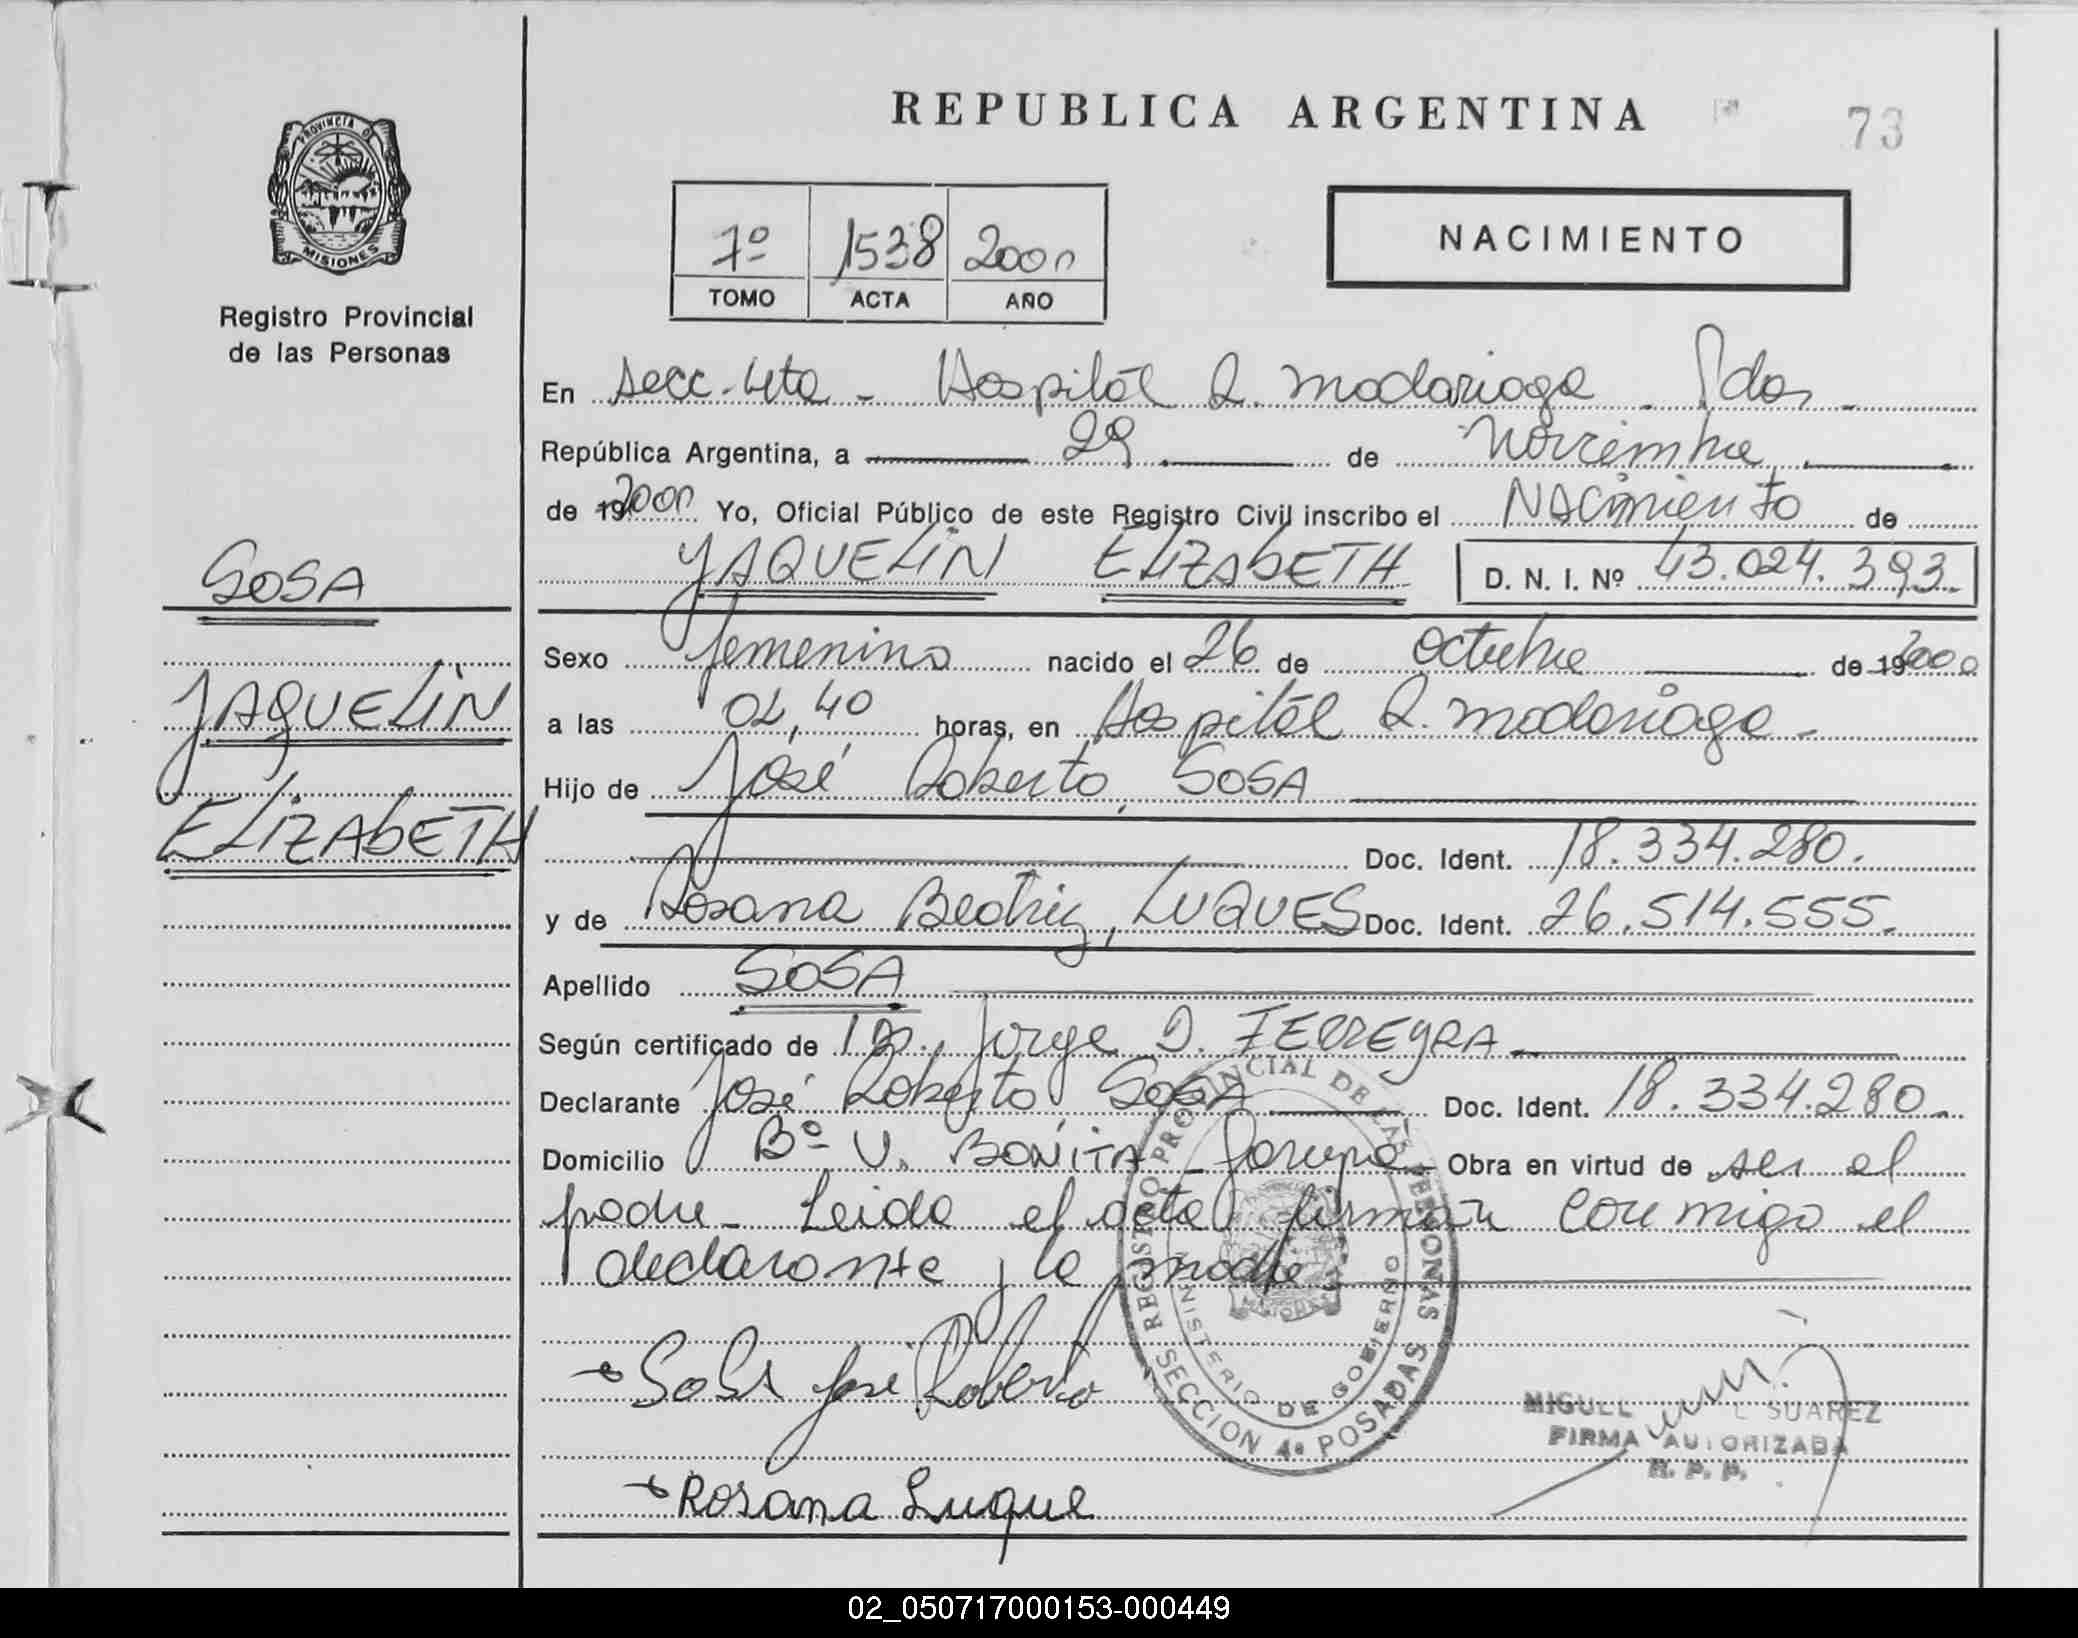 REPUBLICA ARGENTINA
73
PROVINCIA DE
MISIONES
Registro Provincial
de las Personas
7º 1538 2000
TOMO ACTA AÑO
NACIMIENTO
En Secc. 4ta - Hospital R. Madariaga - Pdas -
República Argentina, a 29 de Noviembre
de 19 2000 Yo, Oficial Público de este Registro Civil inscribo el NACimiento de
YAQUELIN ELIZAbETH D. N. I. Nº 43.024.393
SOSA
YAQUELIN
ELIZAbETH
Sexo femenino nacido el 26 de octubre de 19 2000
a las 04,40 horas, en Hospital R. Madariaga -
Hijo de José Roberto, SOSA
Doc. Ident. 18.334.280.
y de Rosana Beatriz, LUQUES Doc. Ident. 26.514.555.
Apellido SOSA
Según certificado de Jorge D. FERREYRA
Declarante José Roberto SOSA Doc. Ident. 18.334.280
Domicilio Bº V. BONITA - Garupá - Obra en virtud de ser el
padre - Leida el acta firman conmigo el
declarante y la madre
SoSA José Roberto
Rosana Luque
REGISTRO PROVINCIAL DE LAS PERSONAS
MINISTERIO DE GOBIERNO
SECCION 4ª POSADAS
MIGUEL SUAREZ
FIRMA AUTORIZADA
R. P. P.
02_050717000153-000449